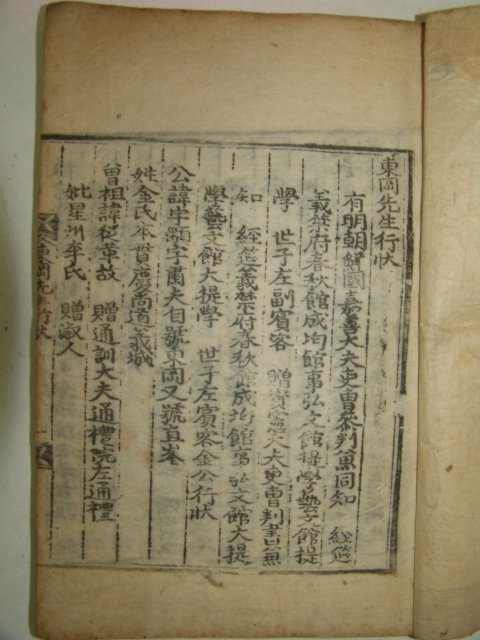 東岡先生行狀
有明朝鮮國嘉善大夫吏曹參判兼同知 經筵
義禁府春秋館成均館事弘文館提學藝文館提
學 世子左副賓客 贈資憲大夫吏曹判書兼
知 經筵義禁府春秋館成均館事弘文館大提
學藝文館大提學 世子左賓客金公行狀
公諱宇顒字肅夫自號東岡又號直峯
姓金氏本貫慶尚道義城
曾祖諱從革故 贈通訓大夫通禮院左通禮
妣星州李氏 贈淑人
東岡先生行狀